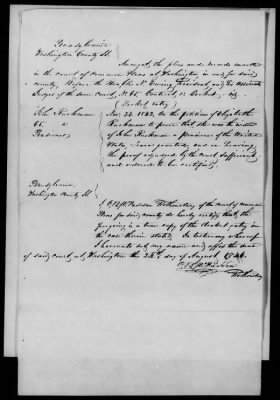 Pennsylvania
Washington County Ss.
Amongst the pleas and records
in the Court of Common Pleas at Washington in and for said
county, Before the Hon. N. Ewing President, and his Associate
Judges of the same Court, No. 65,
(Docket entry)
John Rickman
65 a
Nov. 22. 1842. On the petition of Elizabeth
Rickman to prove that she was the widow
of John Rickman a pensioner of the United
States, Leave granted, and on hearing
the proof adjudged by the Court sufficient
and ordered to be certified.
Pennsylvania
Washington County Ss.
I Prothonotary of the court of common
Pleas for said county do hereby certify that the
foregoing is a true copy of the docket entry in
the case therein stated. In testimony whereof
I hereunto set my name and affix the seal
of said court, at Washington the 24th day of August 1846.
Prothonotary